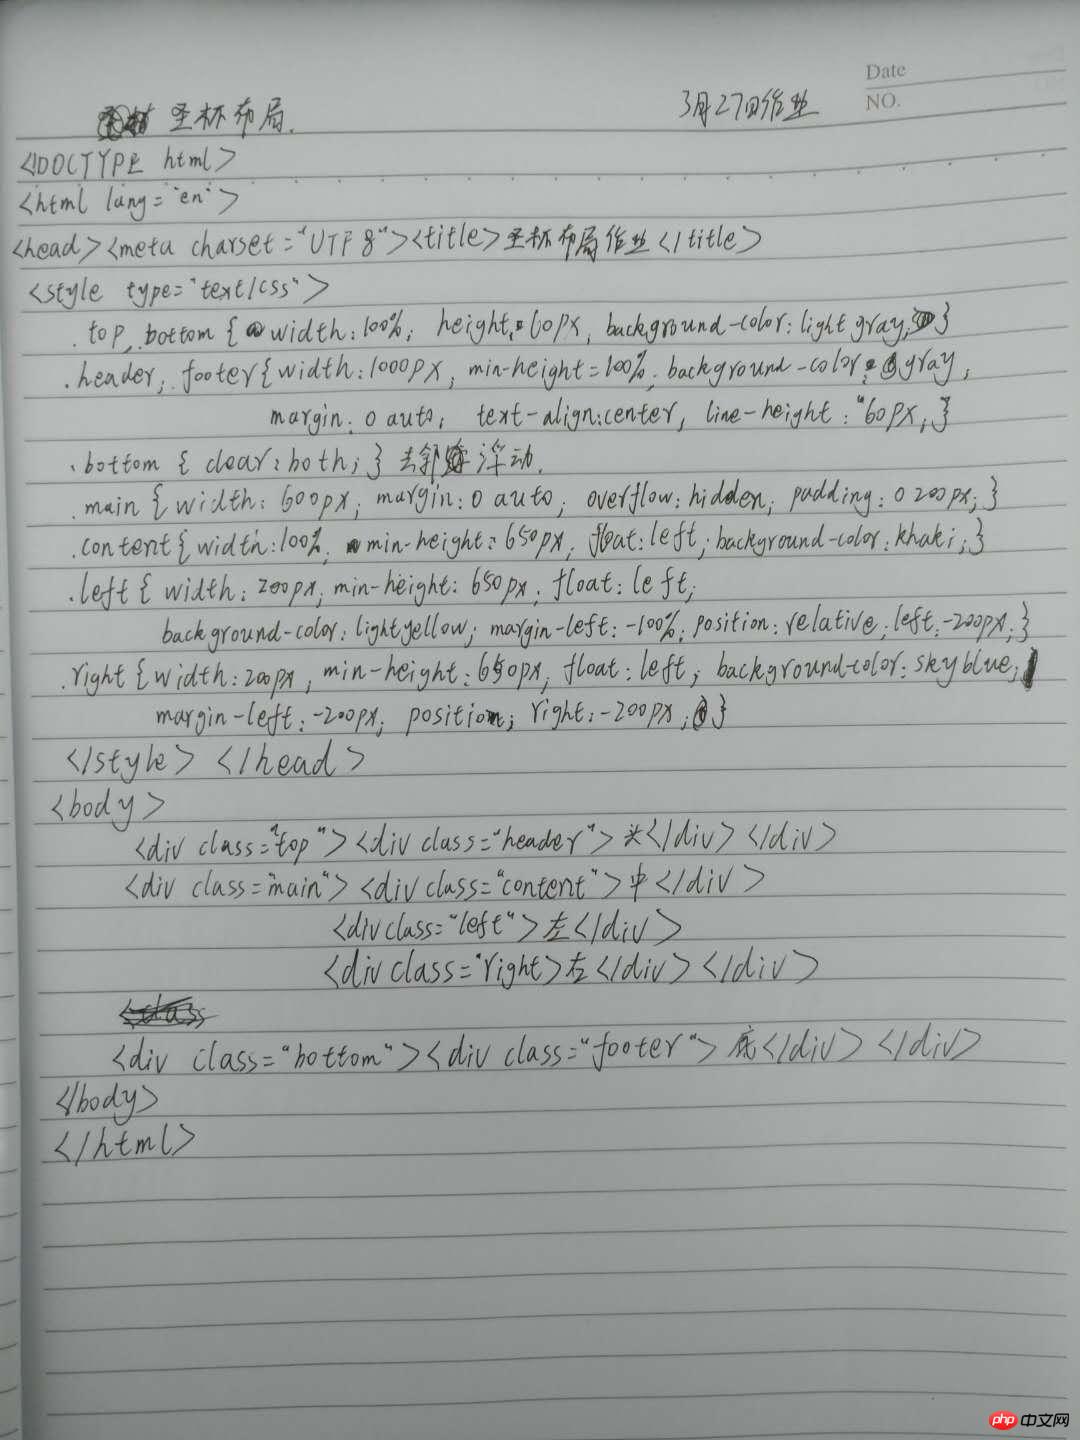 Date
NO.
圣杯布局. 3月27日作业
<!DOCTYPE html>
<html lang="en">
<head><meta charset="UTF 8"><title>圣杯布局作业</title>
<style type="text/css">
.top, .bottom { width:100%; height:60px, background-color:light gray; }
.header, .footer{width:1000px, min-height=100%, background-color:gray,
margin:0 auto; text-align:center, line-height:"60px,}
.bottom { clear:both; } 去 浮动.
.main {width: 600px; margin:0 auto; overflow:hidden; padding:0 200px;}
.content{width:100%, min-height:650px, float:left; background-color:khaki;}
.left { width: 200px; min-height: 650px, float:left;
background-color:lightyellow; margin-left:-100%; position:relative, left:-200px;}
.right{width:200px, min-height:650px, float:left; background-color:skyblue;
margin-left:-200px; position; right:-200px; }
</style> </head>
<body>
<div class="top"><div class="header">头</div> </div>
<div class="main"> <div class="content">中</div>
<div class="left">左</div>
<div class="right>右</div> </div>
<div class="bottom"><div class="footer">底</div> </div>
</body>
</html>
php 中文网